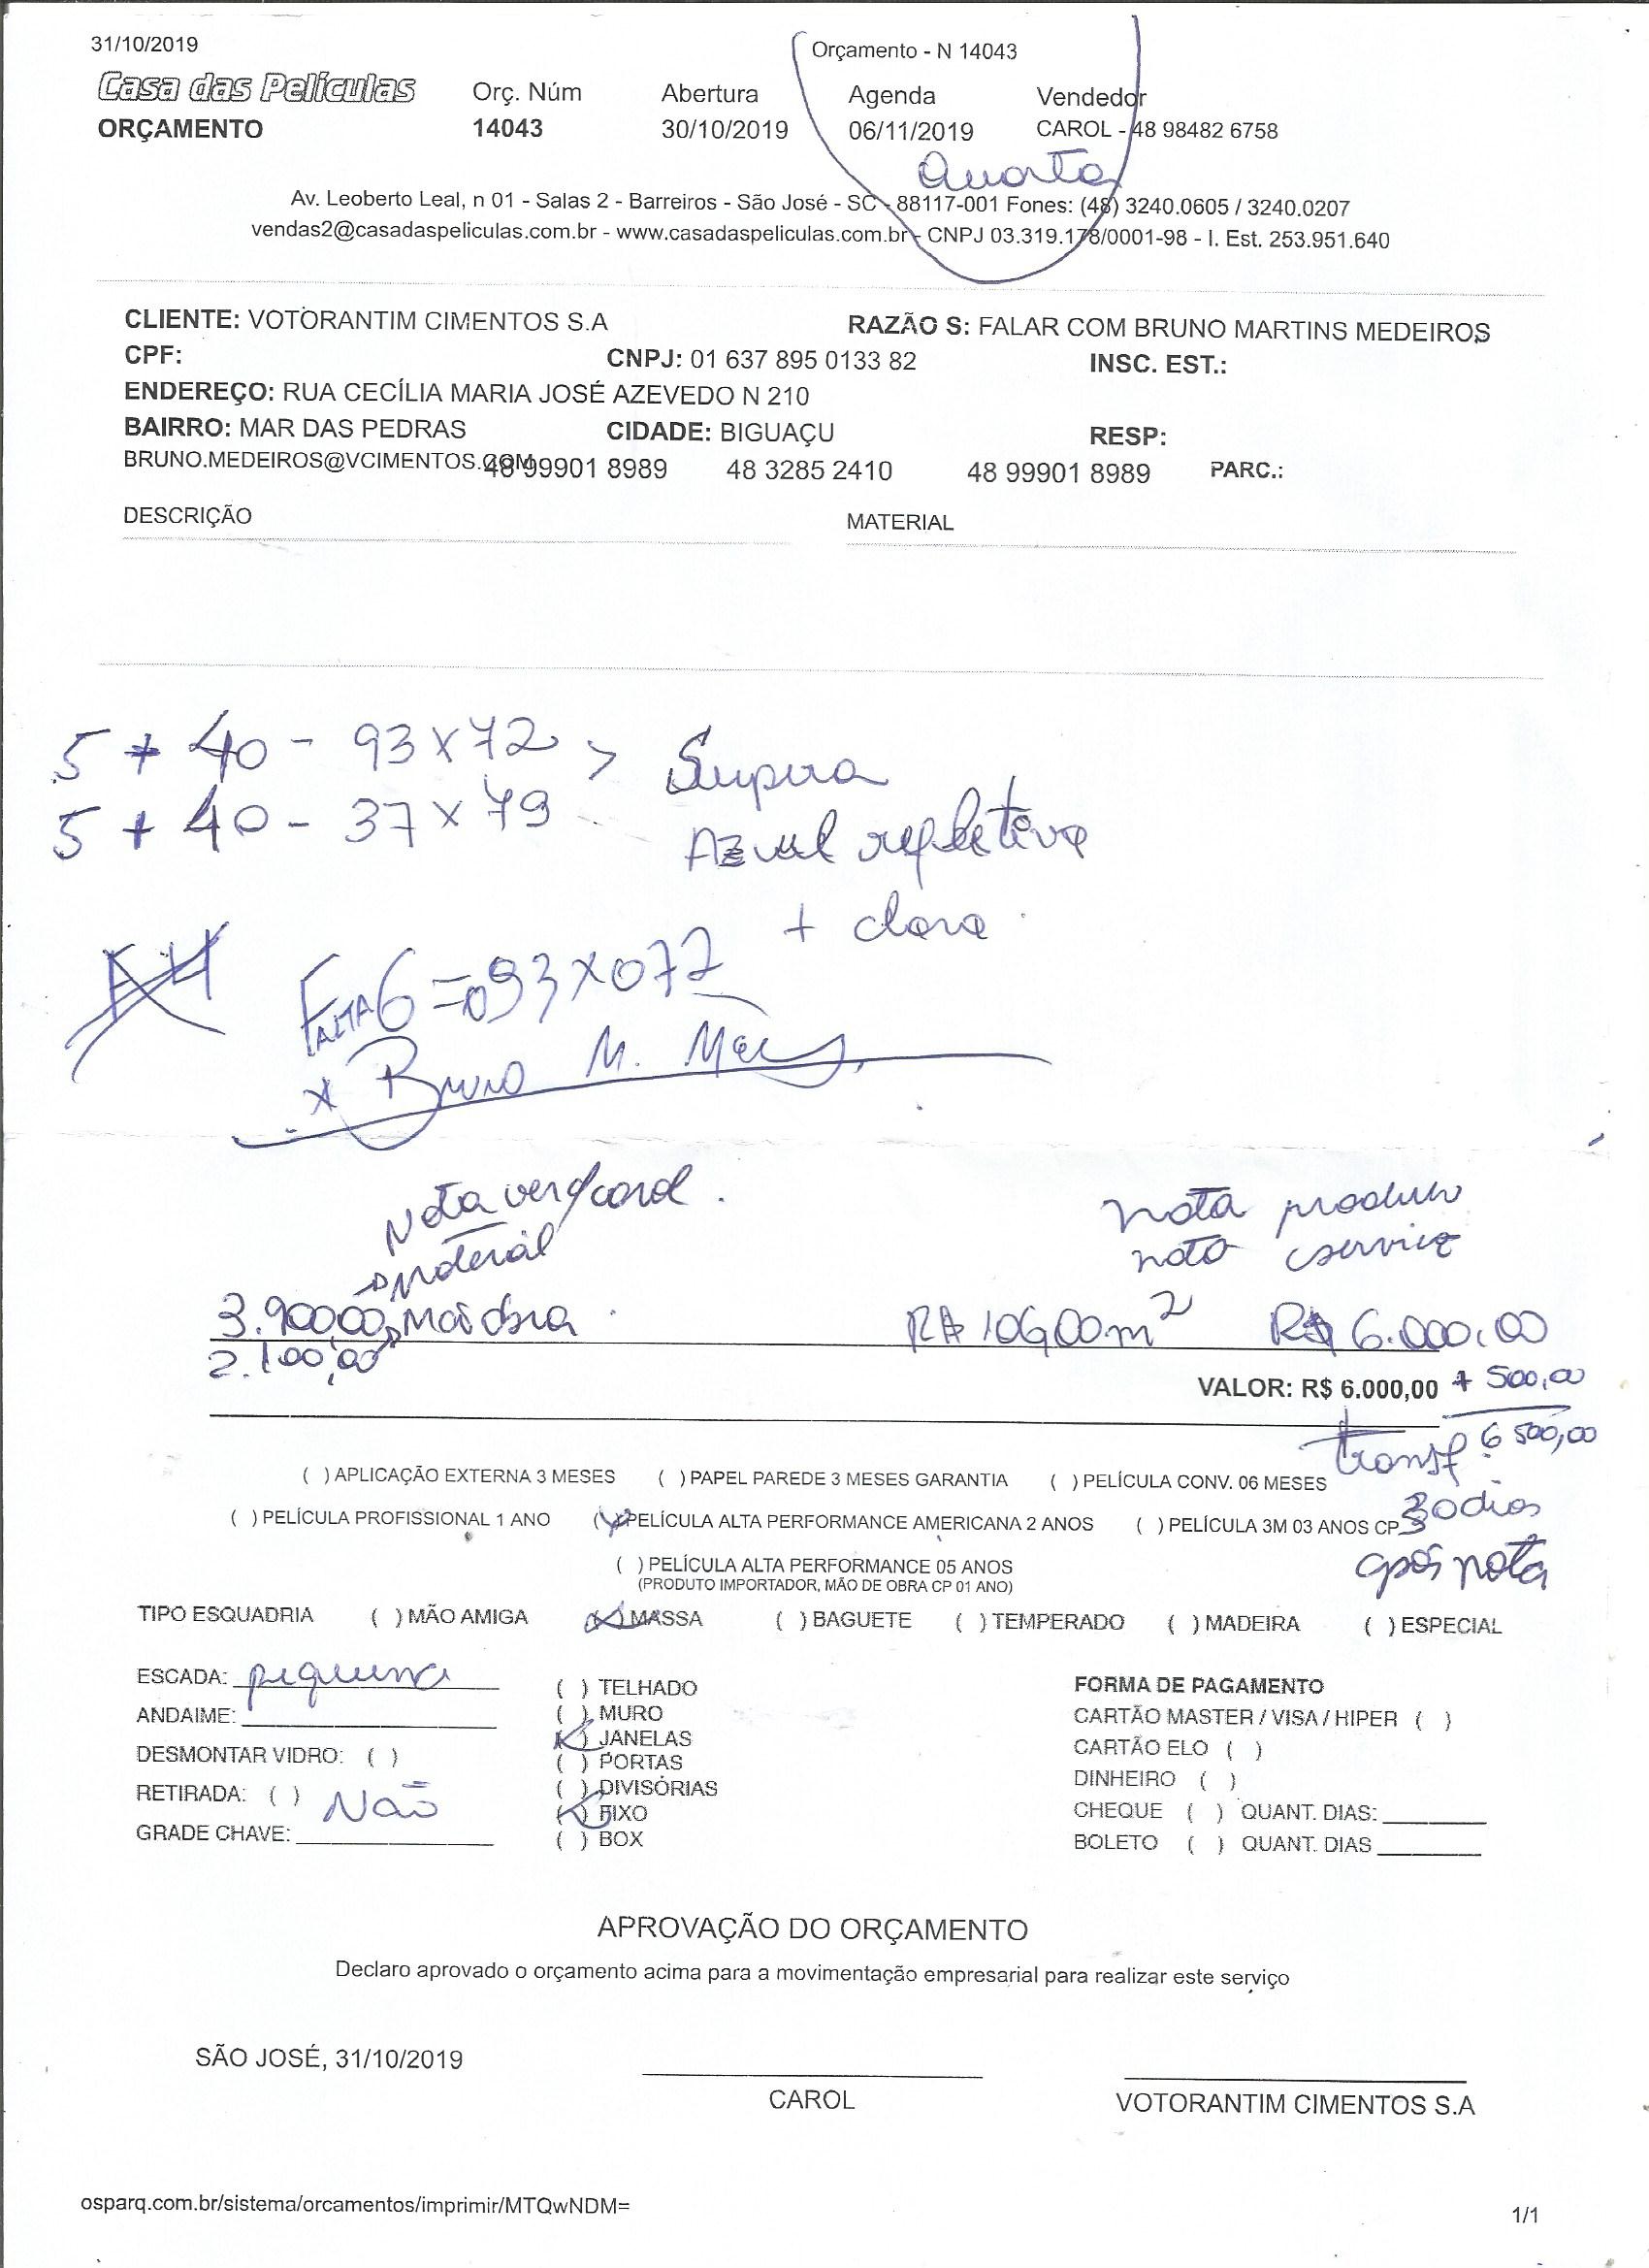 31/10/2019
Orçamento - N 14043
Casa das Películas
Orç. Núm Abertura Agenda Vendedor
ORÇAMENTO 14043 30/10/2019 06/11/2019 CAROL - 48 98482 6758
Quarta
Av. Leoberto Leal, n 01 - Salas 2 - Barreiros - São José - SC - 88117-001 Fones: (48) 3240.0605 / 3240.0207
vendas2@casadaspeliculas.com.br - www.casadaspeliculas.com.br - CNPJ 03.319.178/0001-98 - I. Est. 253.951.640
CLIENTE: VOTORANTIM CIMENTOS S.A RAZÃO S: FALAR COM BRUNO MARTINS MEDEIROS
CPF: CNPJ: 01 637 895 0133 82 INSC. EST.:
ENDEREÇO: RUA CECÍLIA MARIA JOSÉ AZEVEDO N 210
BAIRRO: MAR DAS PEDRAS CIDADE: BIGUAÇU RESP:
BRUNO.MEDEIROS@VCIMENTOS.COM 48 99901 8989 48 3285 2410 48 99901 8989 PARC.:
DESCRIÇÃO MATERIAL
5 + 40 - 93 x 72 > Supera
5 + 40 - 37 x 79
Azul refletiva
+ clara
FALTA 6 = 093 x 072
x Bruno M.
Nota
material
nota produto
nota serviço
3.900,00 Mão obra R$ 106,00 m² R$ 6.000,00
2.100,00
VALOR: R$ 6.000,00 + 500,00
6.500,00
transf
( ) APLICAÇÃO EXTERNA 3 MESES ( ) PAPEL PAREDE 3 MESES GARANTIA ( ) PELÍCULA CONV. 06 MESES
30 dias
( ) PELÍCULA PROFISSIONAL 1 ANO (x) PELÍCULA ALTA PERFORMANCE AMERICANA 2 ANOS ( ) PELÍCULA 3M 03 ANOS CP
após nota
( ) PELÍCULA ALTA PERFORMANCE 05 ANOS
(PRODUTO IMPORTADOR, MÃO DE OBRA CP 01 ANO)
TIPO ESQUADRIA ( ) MÃO AMIGA (x) MASSA ( ) BAGUETE ( ) TEMPERADO ( ) MADEIRA ( ) ESPECIAL
ESCADA: pequena
ANDAIME:
DESMONTAR VIDRO: ( )
RETIRADA: ( ) Não
GRADE CHAVE:
( ) TELHADO
( ) MURO
(x) JANELAS
( ) PORTAS
( ) DIVISÓRIAS
(x) FIXO
( ) BOX
FORMA DE PAGAMENTO
CARTÃO MASTER / VISA / HIPER ( )
CARTÃO ELO ( )
DINHEIRO ( )
CHEQUE ( ) QUANT. DIAS:
BOLETO ( ) QUANT. DIAS
APROVAÇÃO DO ORÇAMENTO
Declaro aprovado o orçamento acima para a movimentação empresarial para realizar este serviço
SÃO JOSÉ, 31/10/2019
CAROL VOTORANTIM CIMENTOS S.A
osparq.com.br/sistema/orcamentos/imprimir/MTQwNDM= 1/1